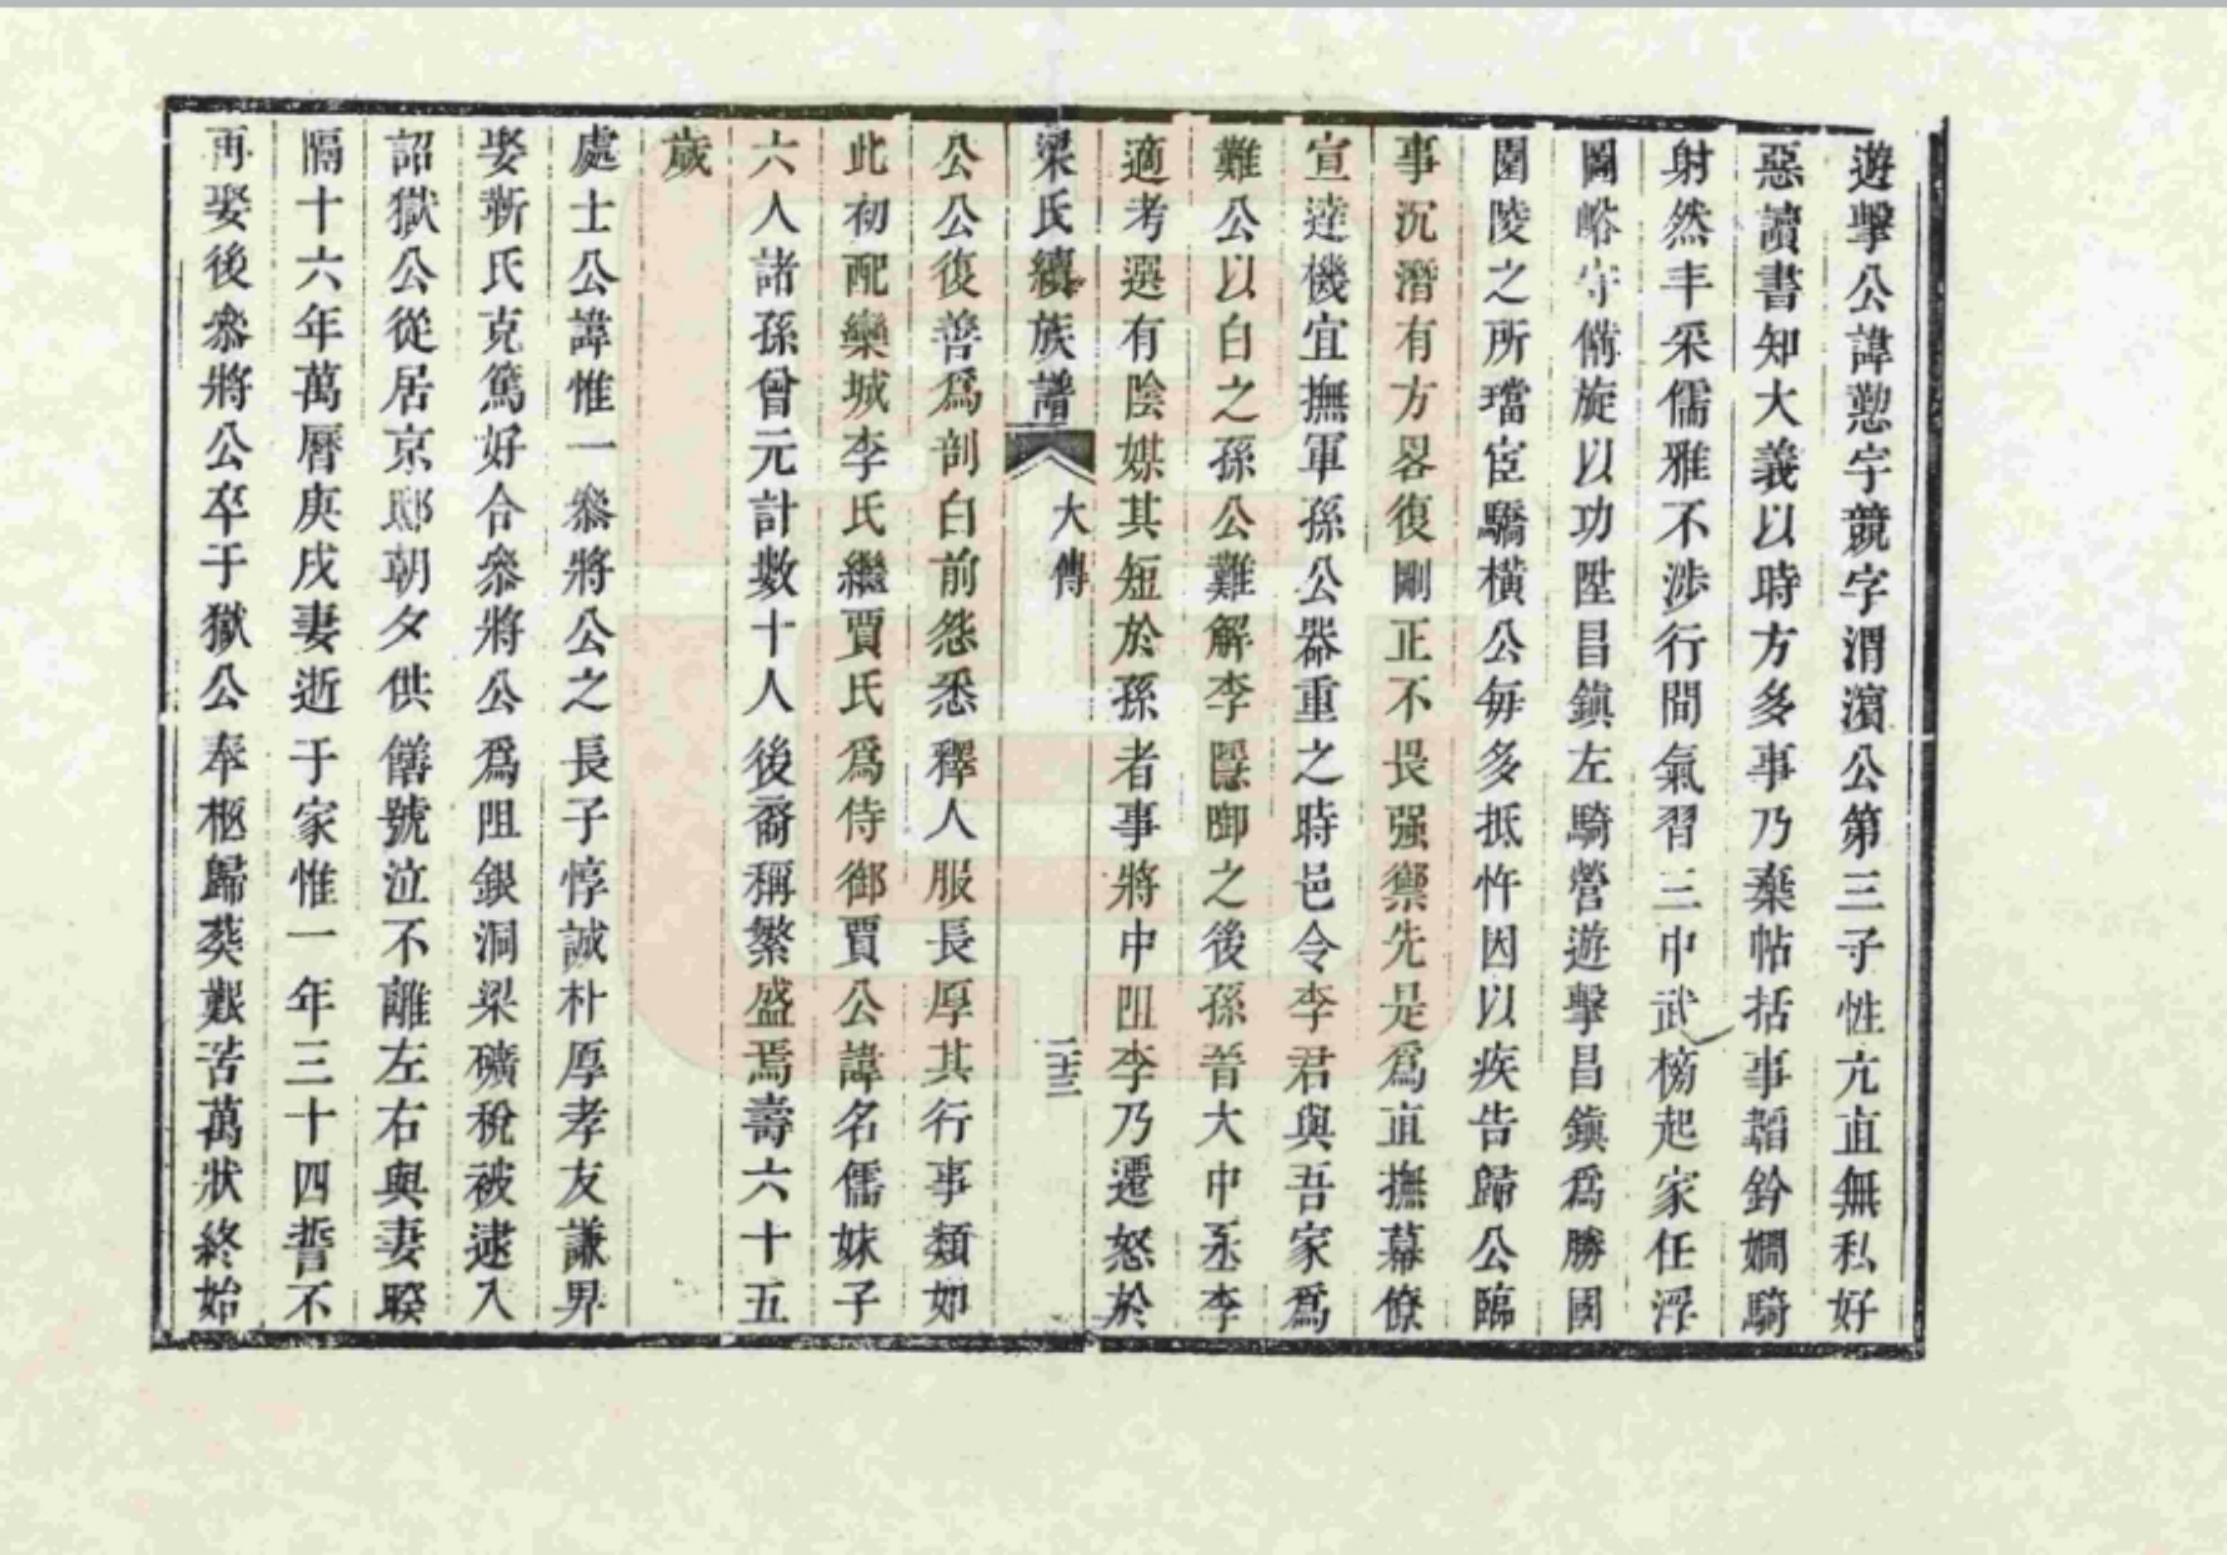 遊擊公諱懃字競字渭濱公第三子性亢直無私好
惡讀書知大義以時方多事乃棄帖括事韜鈐嫺騎
射然丰采儒雅不涉行間氣習三中武榜起家任浮
圖峪守備旋以功陞昌鎮左騎營遊擊昌鎮爲勝國
園陵之所璫宦驕橫公每多抵忤因以疾告歸公臨
事沉潛有方畧復剛正不畏强禦先是爲直撫幕僚
宣達機宜撫軍孫公器重之時邑令李君與吾家爲
難公以白之孫公難解李隱啣之後孫晉大中丞李
適考選有陰媒其短於孫者事將中阻李乃遷怒於
梁氏續族譜 大傳 二十三
公公復善爲剖白前怨悉釋人服長厚其行事類如
此初配欒城李氏繼賈氏爲侍御賈公諱名儒妹子
六人諸孫曾元計數十人後裔稱繁盛焉壽六十五
歲
處士公諱惟一叅將公之長子惇誠朴厚孝友謙畀
娶靳氏克篤好合叅將公爲阻銀洞梁礦稅被逮入
詔獄公從居京邸朝夕供饍號泣不離左右與妻睽
隔十六年萬曆庚戌妻逝于家惟一年三十四誓不
再娶後叅將公卒于獄公奉柩歸葬艱苦萬狀終始